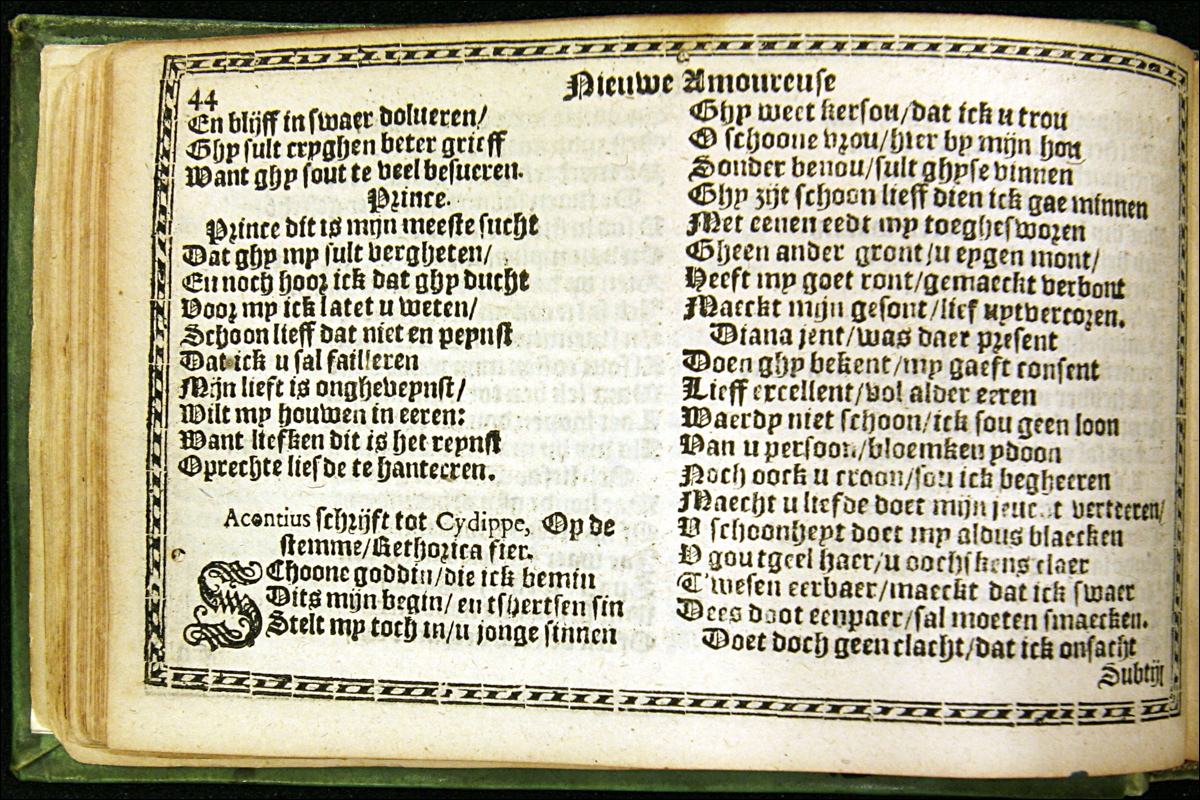 44
Nieuwe Amoureuse
En blijff in swaer dolueren/
Ghy sult cryghen beter grieff
Want ghy sout te veel besueren.
Prince.
Prince dit is mijn meeste sucht
Dat ghy my sult vergheten/
En noch hoor ick dat ghy ducht
Voor my ick latet u weten/
Schoon lieff dat niet en peynst
Dat ick u sal failleren
Mijn lieft is ongheveynst/
Wilt my houwen in eeren:
Want liefken dit is het reynst
Oprechte liefde te hanteeren.
Acontius schrijft tot Cydippe, Op de
stemme/Rethorica fier.
SChoone goddin/die ick bemin
Dits mijn begin/en tshertsen sin
Stelt my toch in/u jonge sinnen
Ghy weet kersou/dat ick u trou
O schoone vrou/hier by mijn hou
Sonder benou/sult ghyse vinnen
Ghy zijt schoon lieff dien ick gae minnen
Met eenen eedt my toegheswozen
Gheen ander gront/u eygen mont/
Heeft my goet ront/gemaeckt verbont
Maeckt mijn gesont/lief uytvercozen.
Diana jent/was daer present
Doen ghy bekent/my gaeft consent
Lieff excellent/vol alder eeren
Waerdy niet schoon/ick sou geen loon
Van u persoon/bloemken ydoon
Noch oock u croon/sou ick begheeren
Maecht u liefde doet mijn verteeren/
U schoonheyt doet my aldus blaecken
U goutgeel haer/u oochskens claer
T'wesen eerbaer/maeckt dat ick swaer
Dees doot eenpaer/sal moeten smaecken.
Doet doch geen clacht/dat ick onsacht
Subtijl